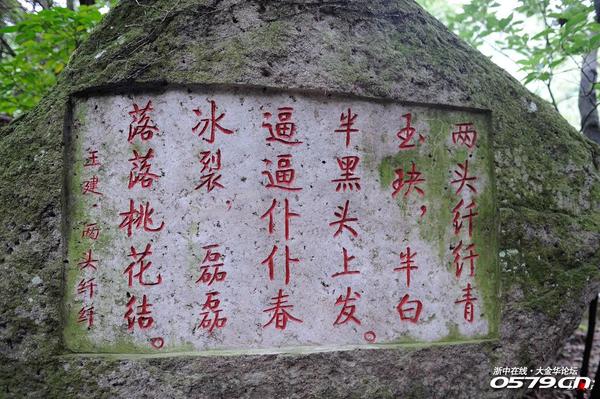 两头纤纤青
玉玦，半白
半黑头上发。
逼逼仆仆春
冰裂，磊磊
落落桃花结。
王建 两头纤纤
浙中在线·大金华论坛
0579.cn